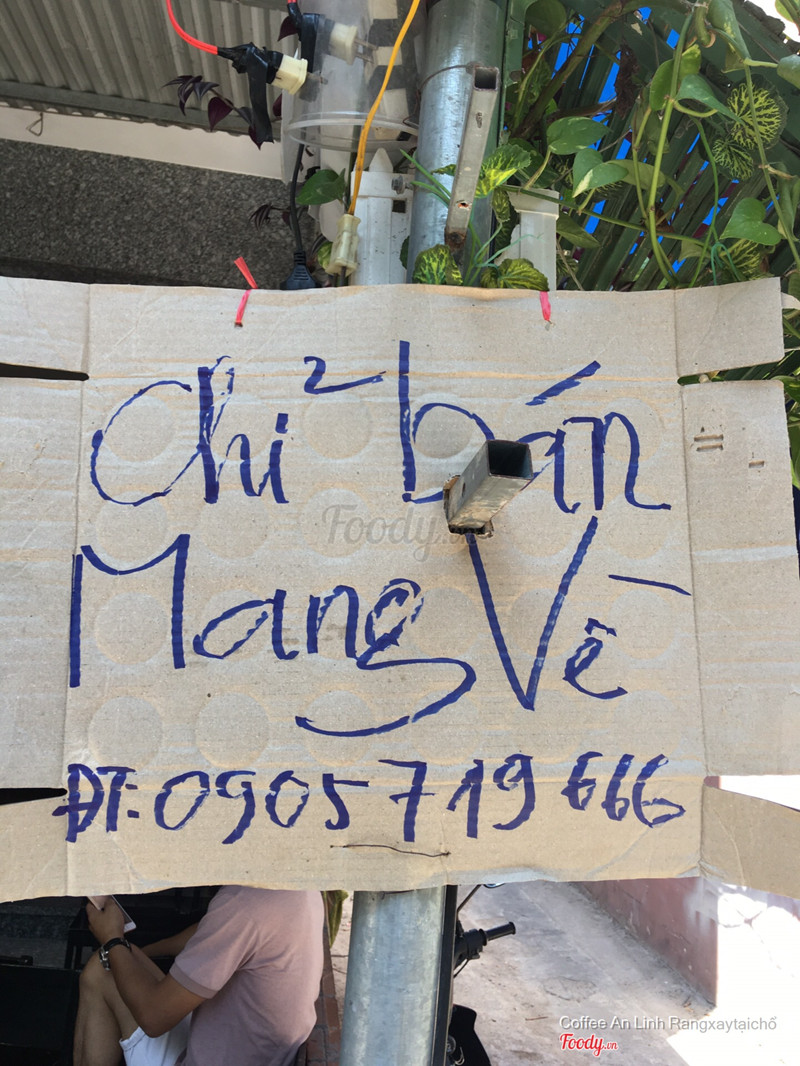 Chỉ bán
Foody.vn
Mang Về
ĐT: 0905 719 666
Coffee An Linh Rangxaytạichỗ
Foody.vn